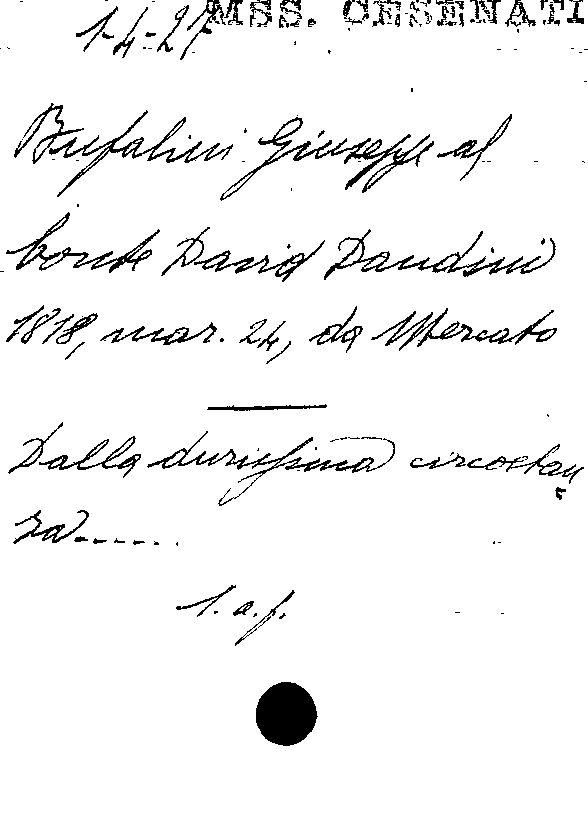 MSS. CESENATI
1-4-27
Bufalini Giuseppe al
Conte David Dandini
1818, mar. 24, da Mercato
Dalla durissima circostan
za......
l. a. f.